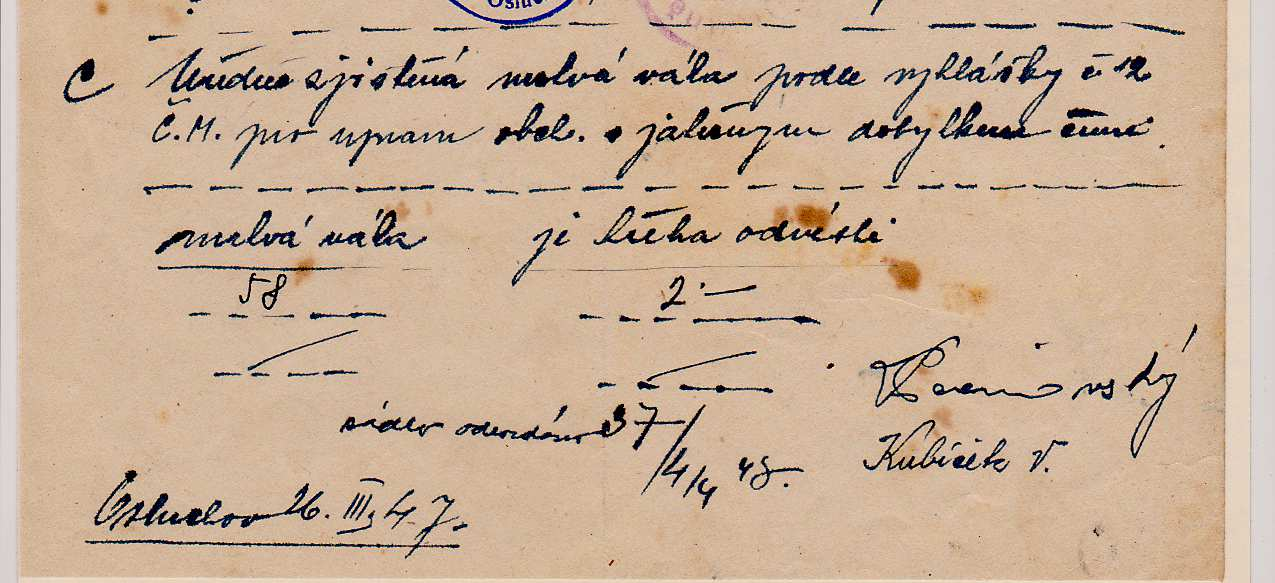 Osluc
C Úředně zjištěná mrtvá váha podle vyhlášky č 12
Č.M. pro úpravu obch. s jatečným dobytkem činí
mrtvá váha je třeba odvésti
58 2.—
sádlo odevzdáno 37
/4/4 48.
Kubíček V.
Osluchov 26. III. 47.